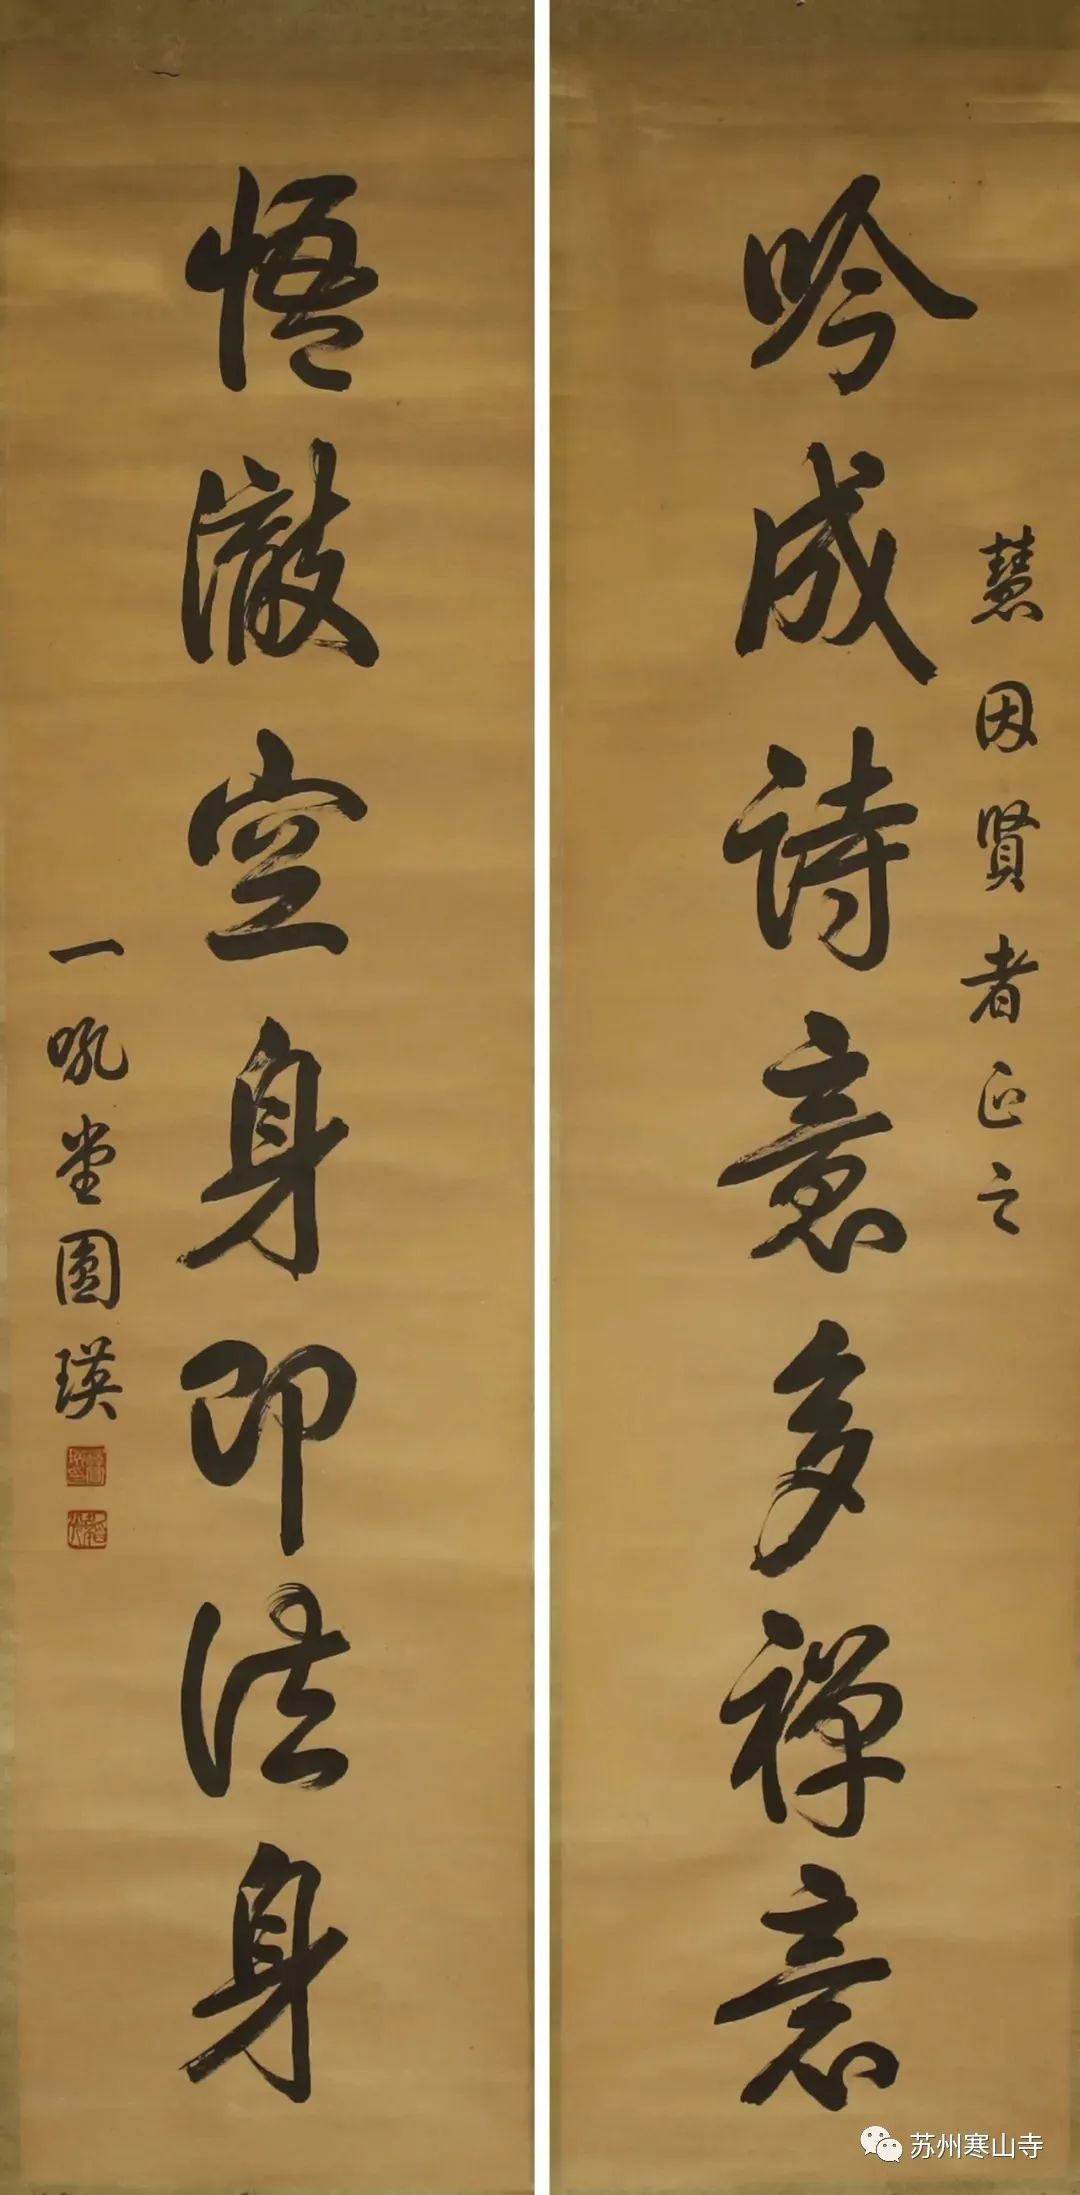 慧因贤者正之
吟成詩意多禅意
悟澈空身即法身
一吼堂圓瑛
苏州寒山寺